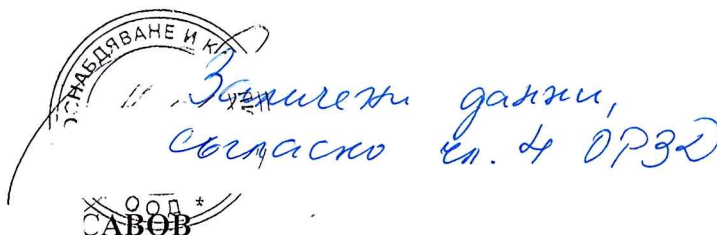 ОСНАБДЯВАНЕ И К
Заличени данни,
съгласно чл. 4 ОРЗД
ООД *
САВОВ